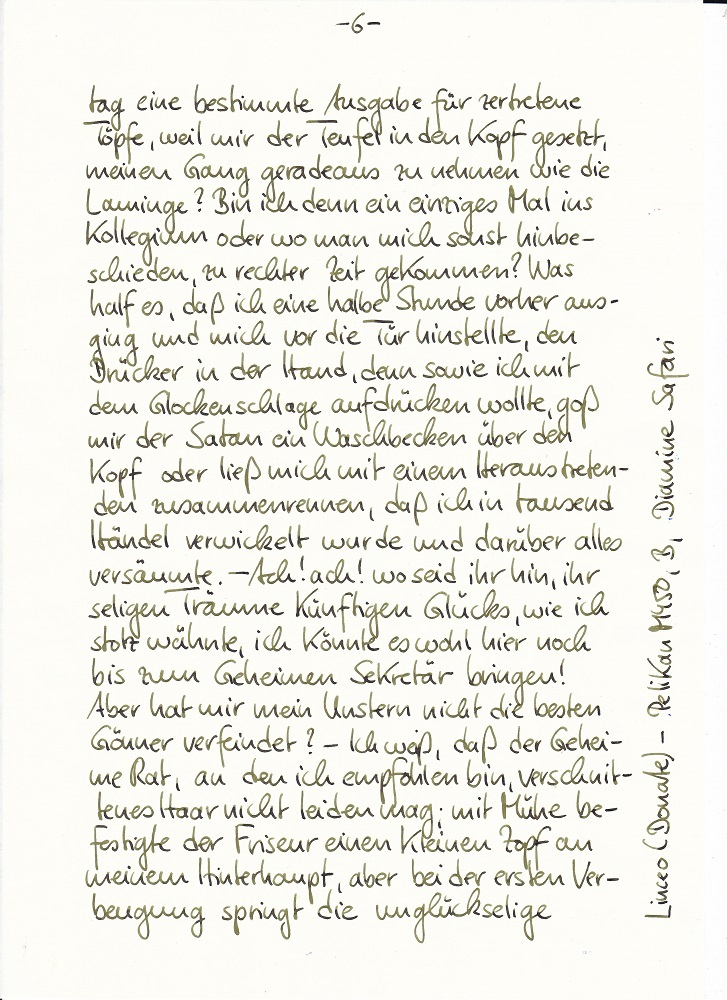 -6-
tag eine bestimmte Ausgabe für zertretene
Töpfe, weil mir der Teufel in den Kopf gesetzt,
meinen Gang geradeaus zu nehmen wie die
Laminge? Bin ich denn ein einziges Mal ins
Kollegium oder wo man mich sonst hinbe-
schieden, zu rechter Zeit gekommen? Was
half es, daß ich eine halbe Stunde vorher aus-
ging und mich vor die Tür hinstellte, den
Drücker in der Hand, denn sowie ich mit
dem Glockenschlage aufdrücken wollte, goß
mir der Satan ein Waschbecken über den
Kopf oder ließ mich mit einem Heraustreten-
den zusammenrennen, daß ich in tausend
Händel verwickelt wurde und darüber alles
versäumte. - Ach! ach! wo seid ihr hin, ihr
seligen Träume künftigen Glücks, wie ich
stolz wähnte, ich könnte es wohl hier noch
bis zum Geheimen Sekretär bringen!
Aber hat mir mein Unstern nicht die besten
Gönner verfeindet? - Ich weiß, daß der Gehei-
me Rat, an den ich empfohlen bin, verschnit-
tenes Haar nicht leiden mag; mit Mühe be-
festigte der Friseur einen kleinen Zopf an
meinem Hinterhaupt, aber bei der ersten Ver-
beugung springt die unglückselige
Linceo (Donate) - Pelikan M450, B, Diamine Safari